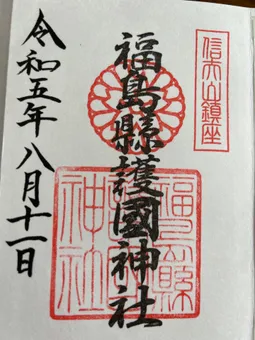 信夫山鎮座
福島縣護國神社
令和五年八月十一日
福島縣
護國
神社